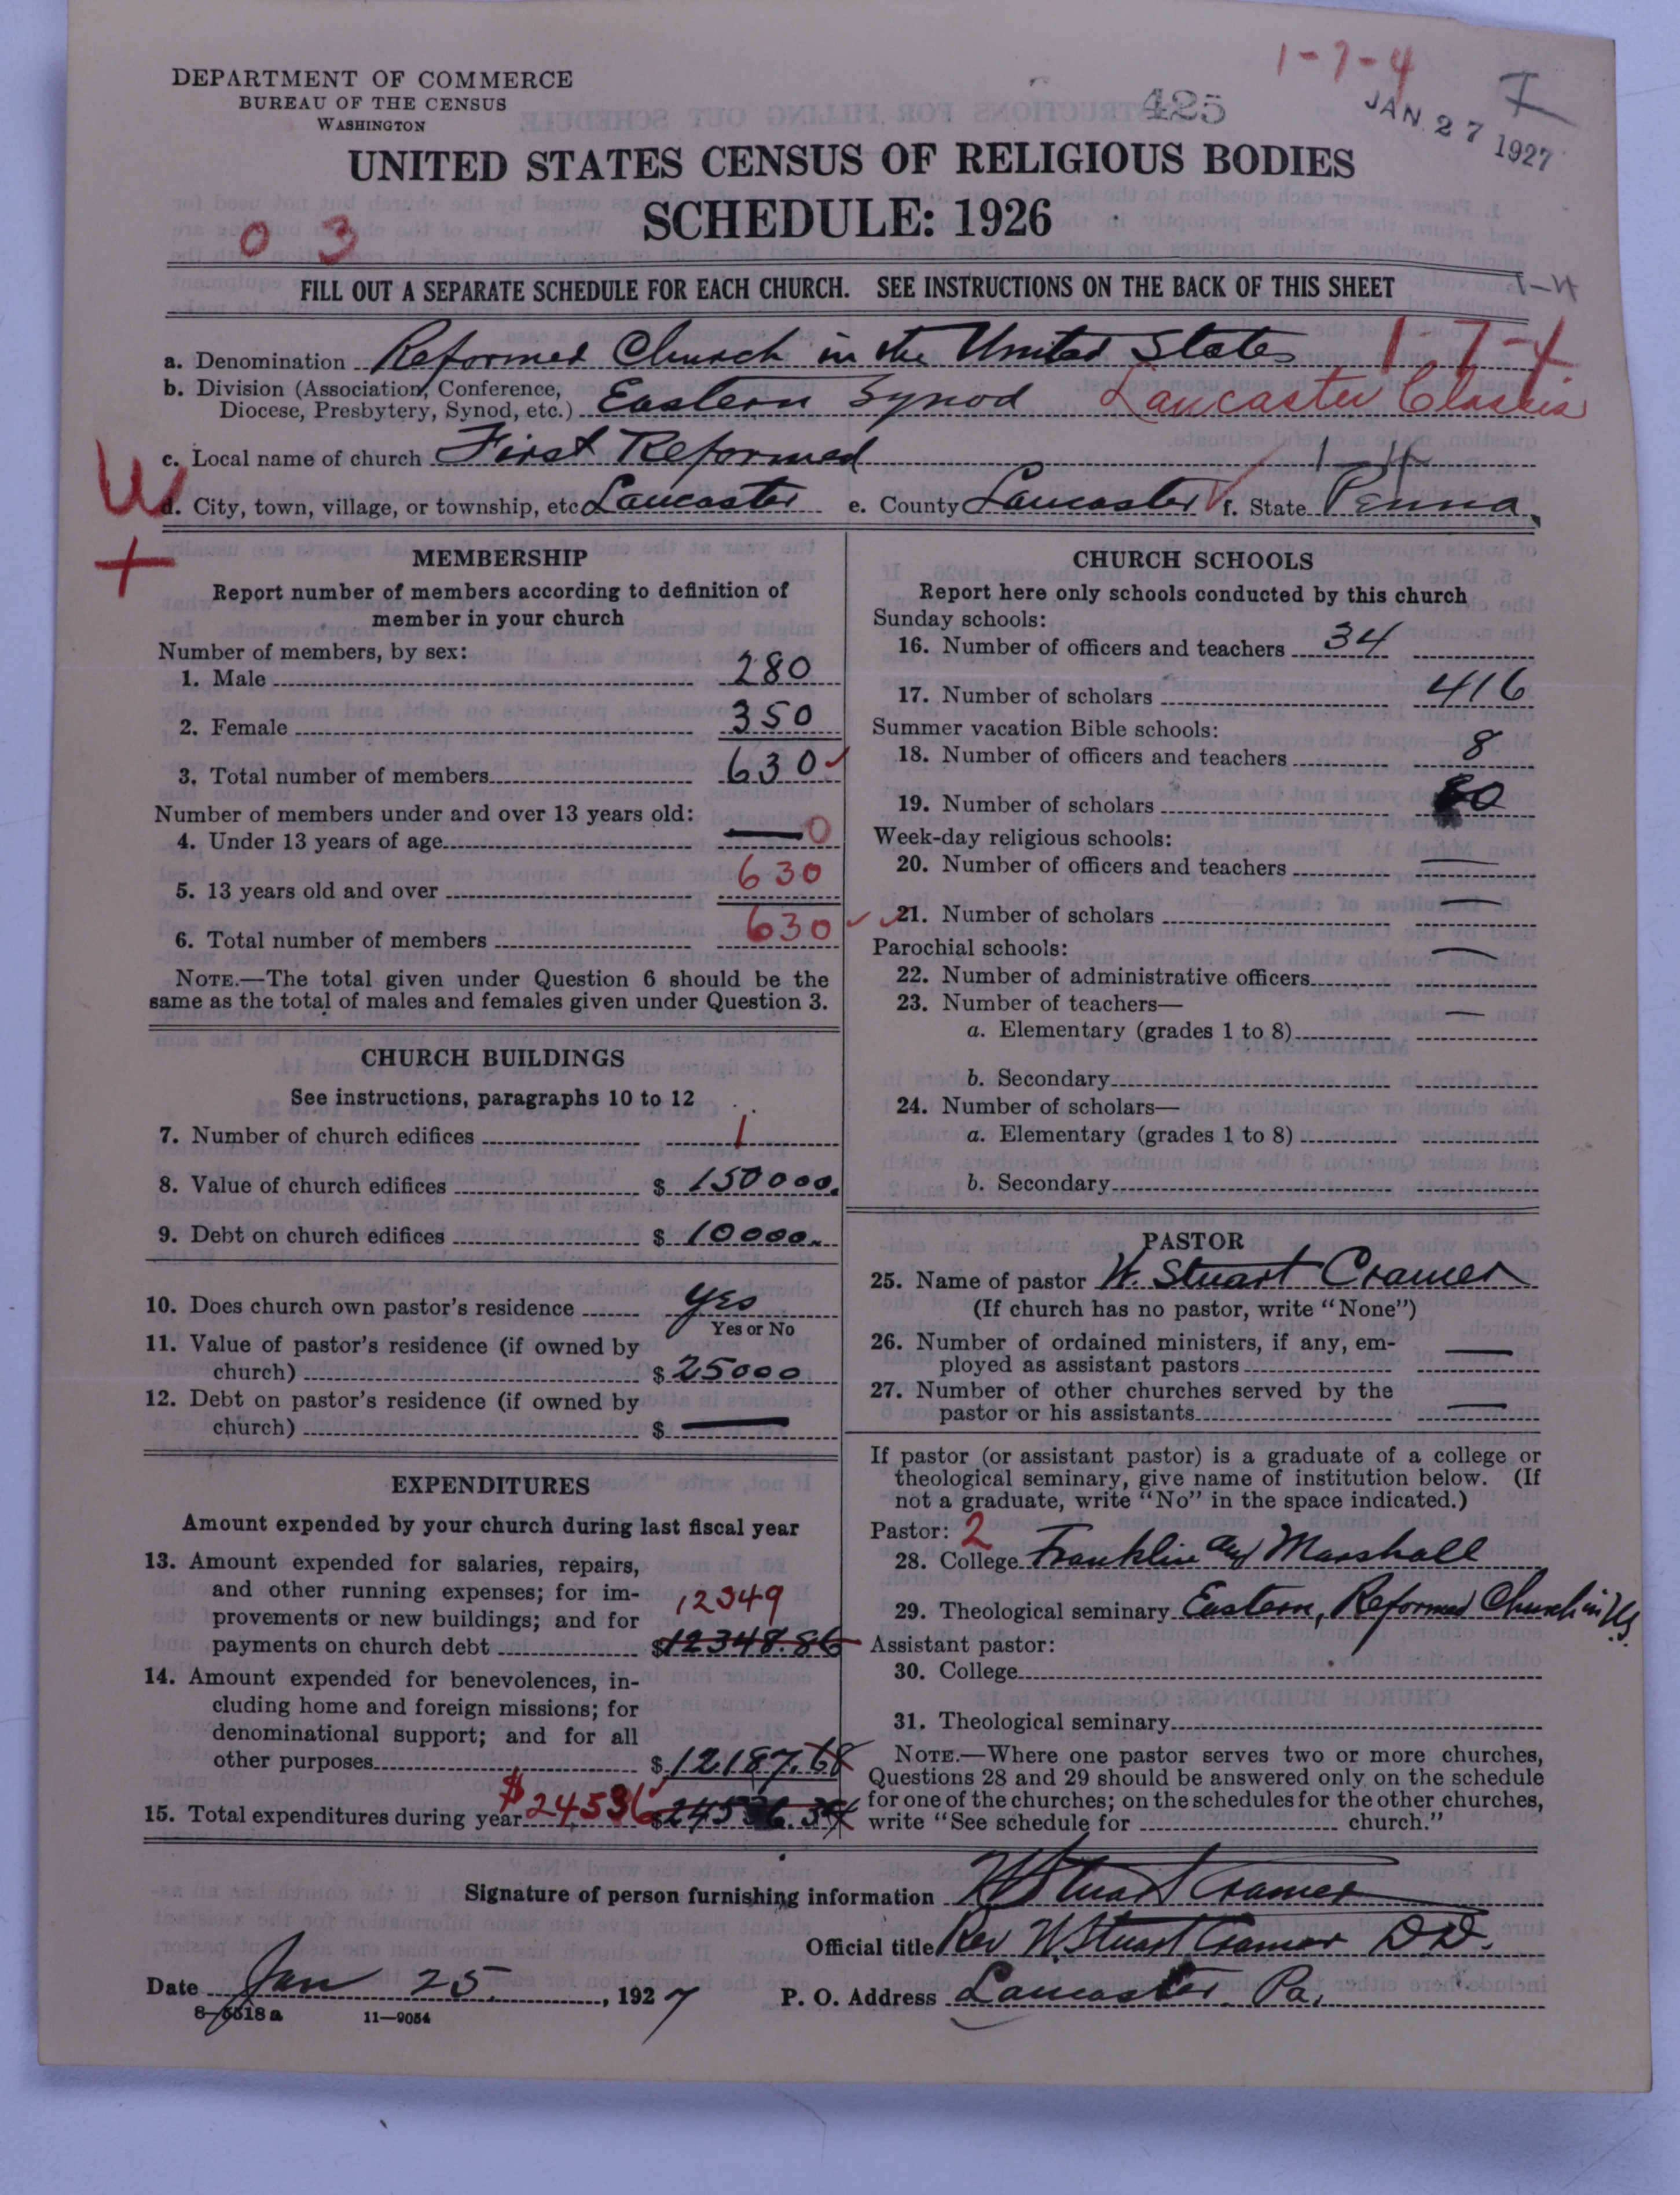 1-7-4
I
DEPARTMENT OF COMMERCE
BUREAU OF THE CENSUS
WASHINGTON
425
JAN 27 1927
UNITED STATES CENSUS OF RELIGIOUS BODIES
SCHEDULE: 1926
0 3
FILL OUT A SEPARATE SCHEDULE FOR EACH CHURCH. SEE INSTRUCTIONS ON THE BACK OF THIS SHEET
a. Denomination Reformed Church in the United States 1-7-4
b. Division (Association, Conference,
Diocese, Presbytery, Synod, etc.) Eastern Synod Lancaster Classis
c. Local name of church First Reformed
W
d. City, town, village, or township, etc Lancaster e. County Lancaster f. State Penna.
+
MEMBERSHIP
Report number of members according to definition of
member in your church
Number of members, by sex:
1. Male 280
2. Female 350
3. Total number of members 630 ✓
Number of members under and over 13 years old:
4. Under 13 years of age — 0
5. 13 years old and over 630
6. Total number of members 630 ✓
NOTE.—The total given under Question 6 should be the
same as the total of males and females given under Question 3.
CHURCH BUILDINGS
See instructions, paragraphs 10 to 12
7. Number of church edifices 1
8. Value of church edifices $ 150000.
9. Debt on church edifices $ 10000.
10. Does church own pastor's residence yes
Yes or No
11. Value of pastor's residence (if owned by
church) $ 25000
12. Debt on pastor's residence (if owned by
church) $ —
EXPENDITURES
Amount expended by your church during last fiscal year
13. Amount expended for salaries, repairs,
and other running expenses; for im-
provements or new buildings; and for 12349
payments on church debt $12348.86
14. Amount expended for benevolences, in-
cluding home and foreign missions; for
denominational support; and for all
other purposes $ 12187.68
15. Total expenditures during year $24,536 $24536.34
CHURCH SCHOOLS
Report here only schools conducted by this church
Sunday schools:
16. Number of officers and teachers 34
17. Number of scholars 416
Summer vacation Bible schools:
18. Number of officers and teachers 8
19. Number of scholars 80
Week-day religious schools:
20. Number of officers and teachers —
21. Number of scholars —
Parochial schools:
22. Number of administrative officers —
23. Number of teachers—
a. Elementary (grades 1 to 8) —
b. Secondary
24. Number of scholars—
a. Elementary (grades 1 to 8)
b. Secondary
PASTOR
25. Name of pastor W. Stuart Cramer
(If church has no pastor, write "None")
26. Number of ordained ministers, if any, em-
ployed as assistant pastors —
27. Number of other churches served by the
pastor or his assistants —
If pastor (or assistant pastor) is a graduate of a college or
theological seminary, give name of institution below. (If
not a graduate, write "No" in the space indicated.)
Pastor: 2
28. College Franklin and Marshall
29. Theological seminary Eastern, Reformed Church in US.
Assistant pastor:
30. College
31. Theological seminary
NOTE.—Where one pastor serves two or more churches,
Questions 28 and 29 should be answered only on the schedule
for one of the churches; on the schedules for the other churches,
write "See schedule for church."
Signature of person furnishing information W Stuart Cramer
Official title Rev W. Stuart Cramer D.D.
Date Jan 25, 1927
P. O. Address Lancaster Pa.
8-5518a 11—9054